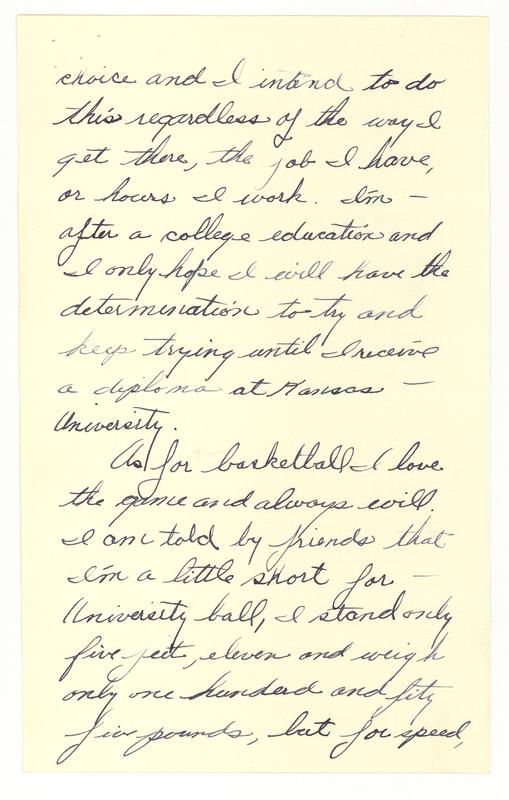 choice and I intend to do
this regardless of the way I
get there, the job I have,
or hours I work. I'm -
after a college education and
I only hope I will have the
determination to try and
keep trying until I receive
a diploma at Kansas -
University.
As for basketball I love
the game and always will.
I am told by friends that
I'm a little short for -
University ball, I stand only
five feet, eleven and weigh
only one hunderd and fity
five pounds, but for speed,